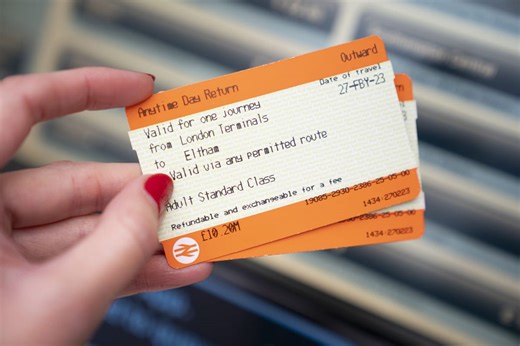 Outward
Anytime Day Return
Date of travel
27-FBY-23
Valid for one journey
from London Terminals
to Eltham
Valid via any permitted route
Adult Standard Class
Refundable and exchangeable for a fee
19085-2930-2386-25-05-00
£10.20M 1434 270223
2386-25-05-00
1434 270223